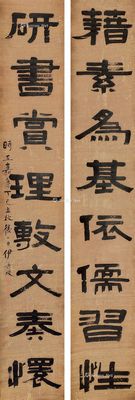 藉素為基依儒習性
研書賞理敷文奏懷